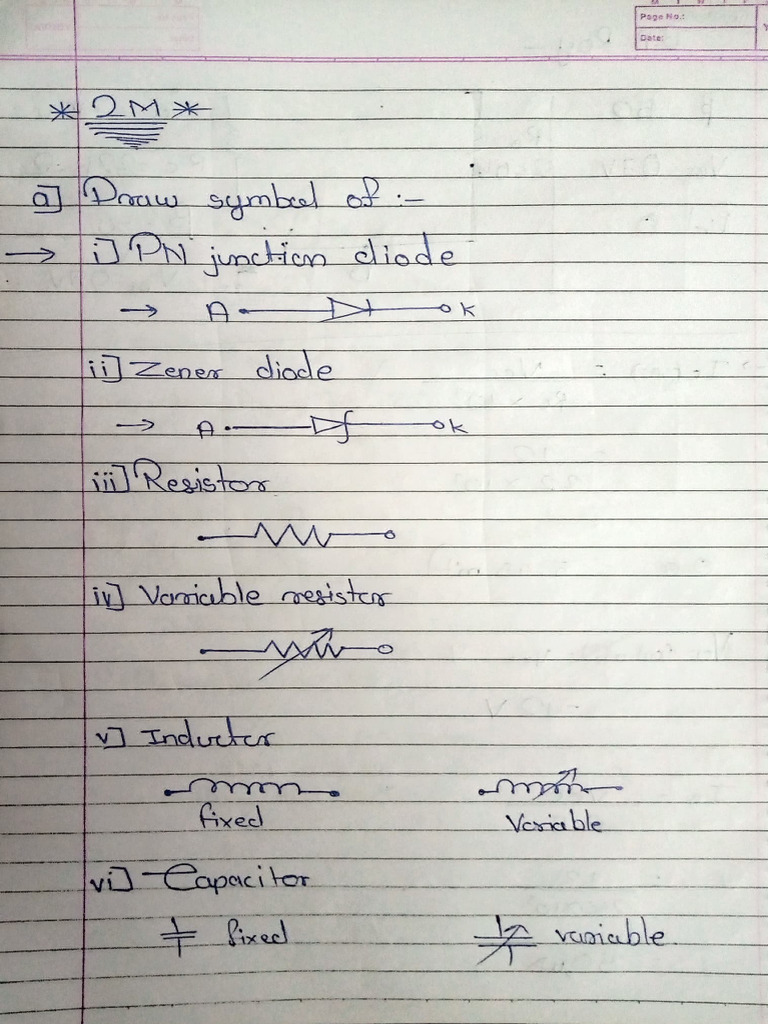 Page No.:
Date:
* 2M *
a] Draw symbol of :-
→ i] PN junction diode
→ A K
ii] Zener diode
→ A K
iii] Resistor
iv] Variable resistor
v] Inductor
fixed Variable
vi] Capacitor
fixed variable.